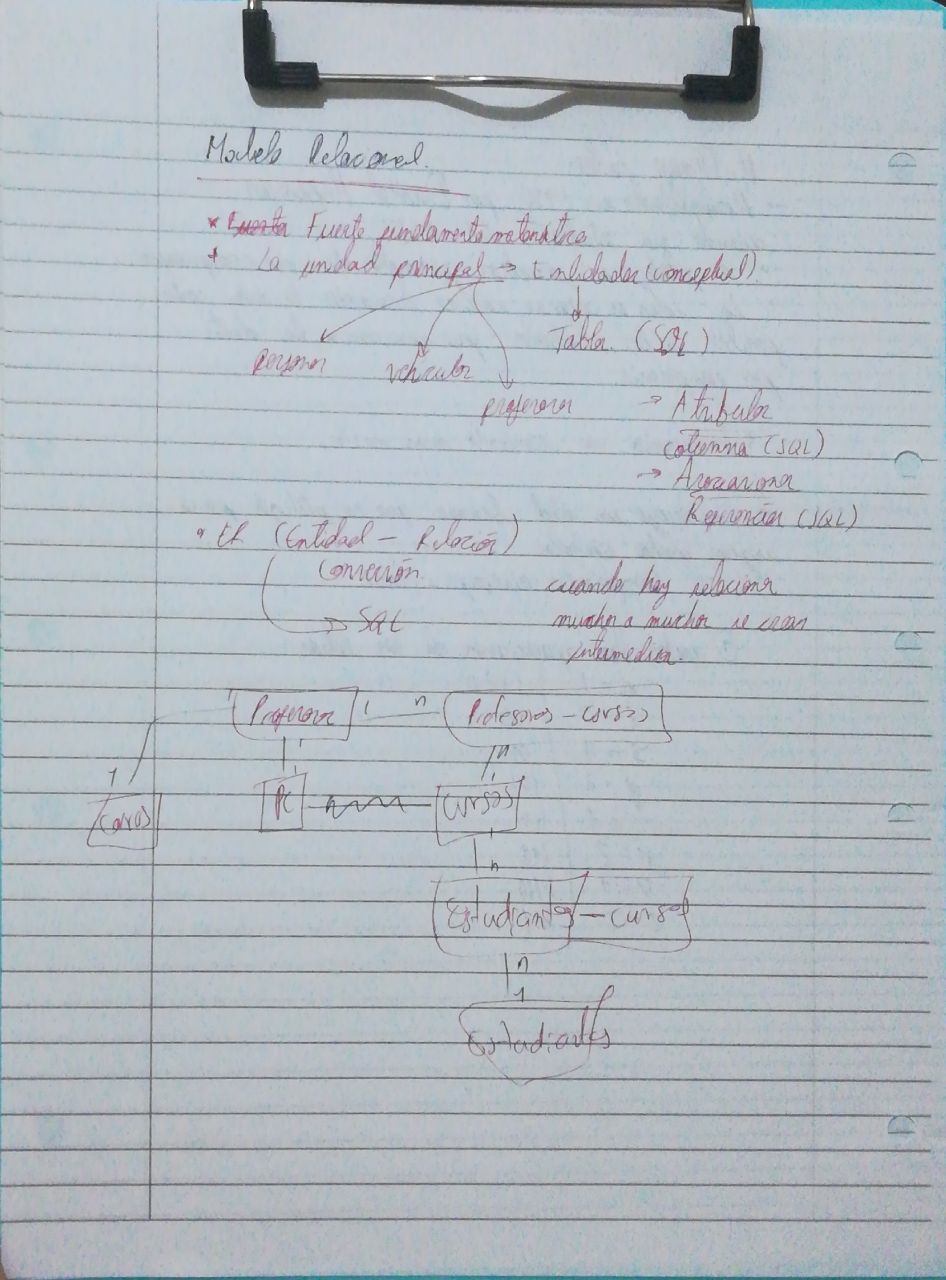 Modelo Relacional.
* Fuerte fundamento matemático
* La unidad principal → Entidades (conceptual).
Tabla (SQL)
personas vehículos
profesores → Atributos
columna (SQL)
→ Asociaciones
Referencias (SQL)
• ER (Entidad - Relación)
Conversión cuando hay relaciones
→ SQL muchos a muchos se crean
intermedias.
Profesores 1 n Profesores - cursos
1 n
1 PC n Cursos
Carros
n
Estudiantes - cursos
n
1
Estudiantes